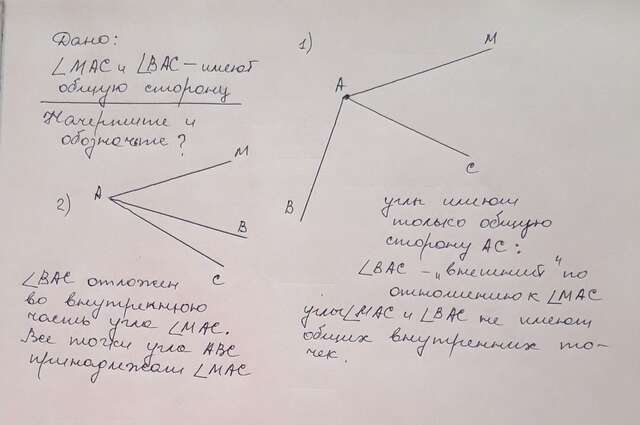 Дано:
∠MAC и ∠BAC – имеют
общую сторону
Начертите и
обозначьте?
1)
M
A
C
B
углы имеют
только общую
сторону AC:
∠BAC – „внешний“ по
отношению к ∠MAC
углы ∠MAC и ∠BAC не имеют
общих внутренних то-
чек.
2)
A
M
B
C
∠BAC отложен
во внутреннюю
часть угла ∠MAC.
Все точки угла ABC
принадлежат ∠MAC